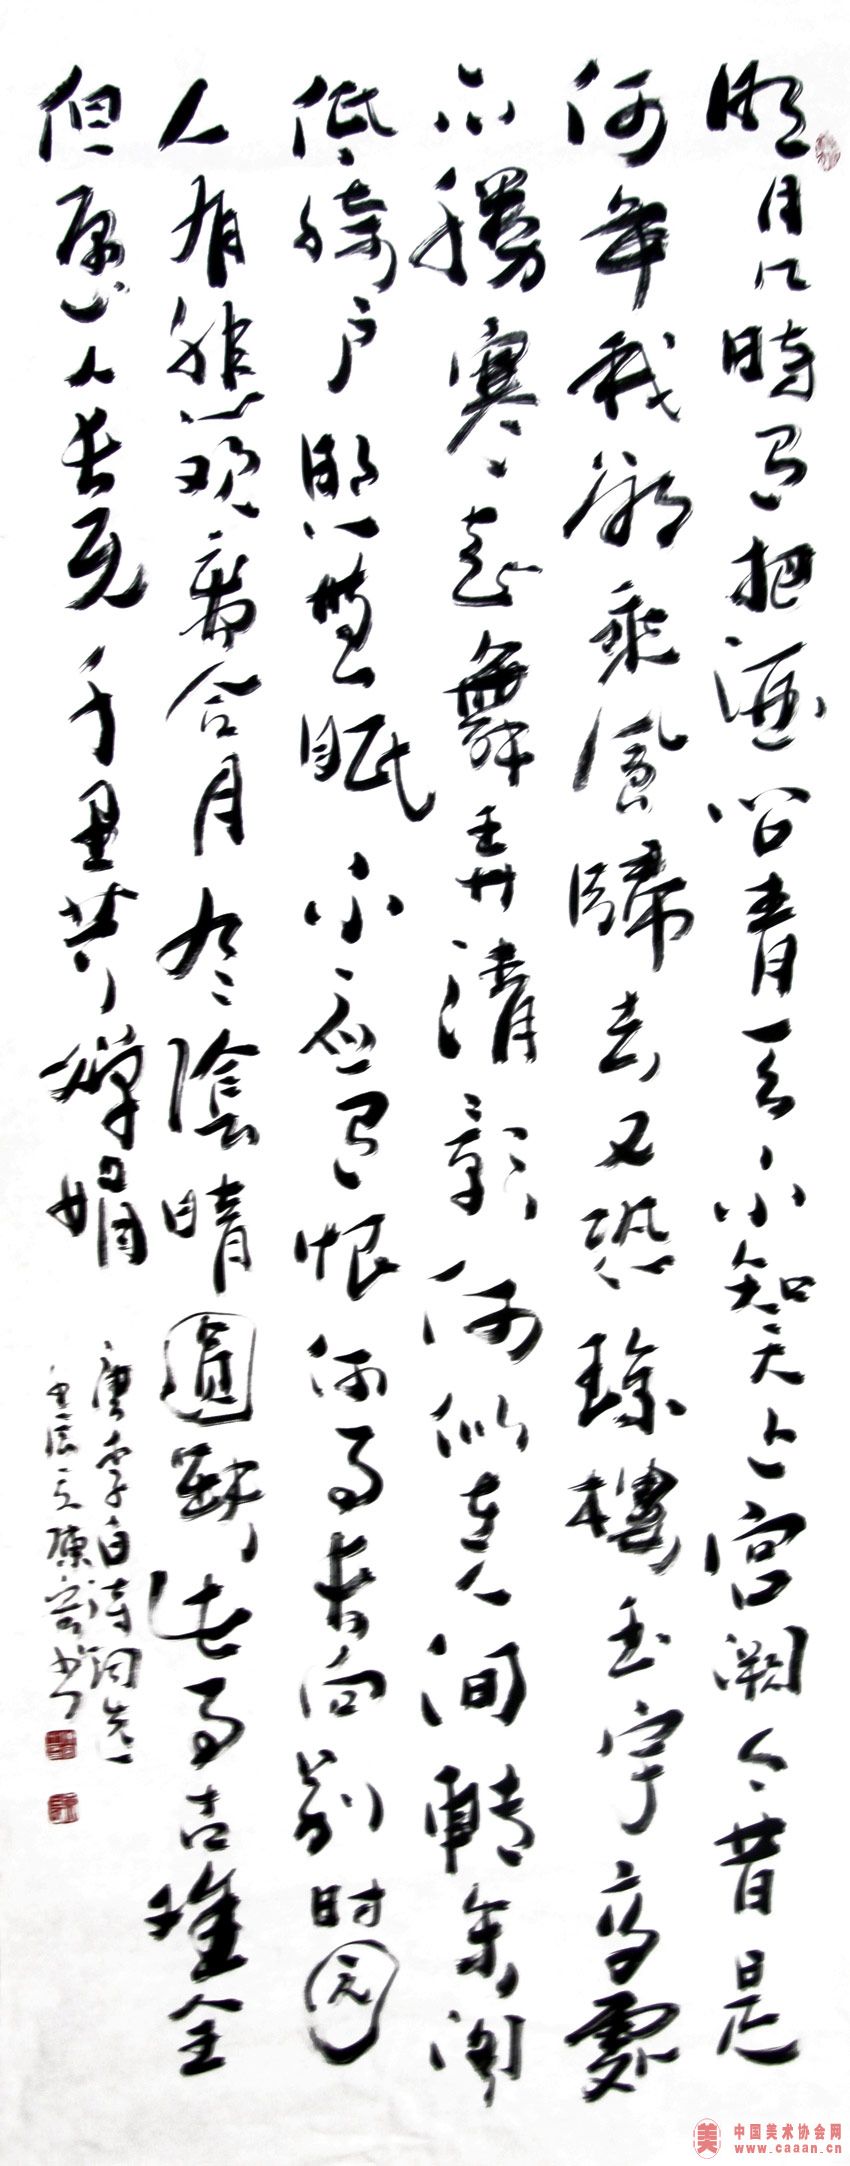 明月几時有把酒问青天不知天上宫阙今昔是
何年我欲乘風歸去又恐瓊樓玉宇高處
不勝寒起舞弄清影何似在人间轉朱阁
低绮户照無眠不应有恨何事长向别时园
人有悲欢离合月有陰晴圓缺此事古难全
但愿人长久千里共嬋娟
唐李白诗词选
壬辰 陳 书
中国美术协会网
www.caaan.cn